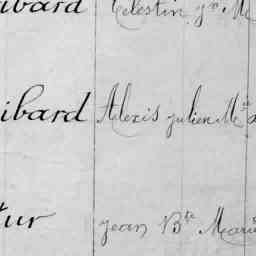 ibard Célestin
ibard Alexis Julien M
tur Jean Bte Marie